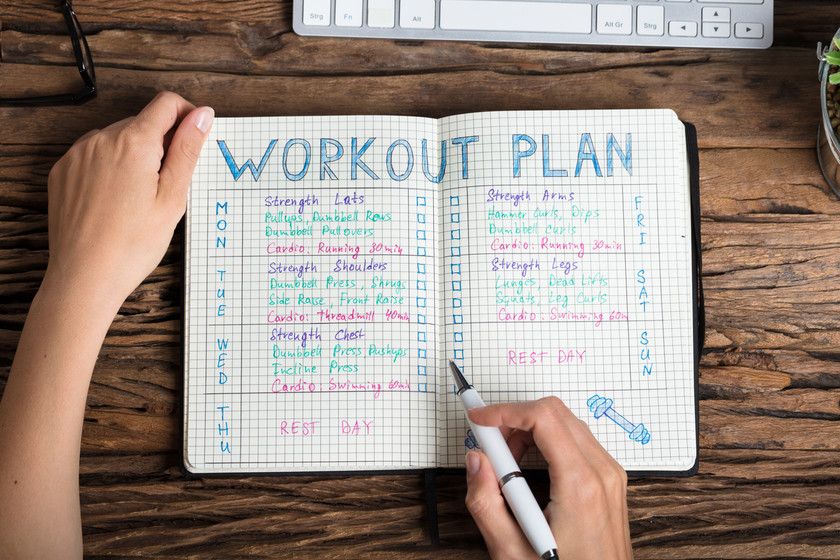 Strg
Fn
Alt
Alt Gr
Strg
WORKOUT PLAN
MON
Strength Lats
Pullups, Dumbbell Rows
Dumbbell Pullovers
Cardio: Running 30min
TUE
Strength Shoulders
Dumbbell Press, Shrugs
Side Raise, Front Raise
Cardio: Threadmill 40min
WED
Strength Chest
Dumbbell Press Pushups
Incline Press
Cardio Swimming 60min
THU
REST DAY
Strength Arms
Hammer Curls, Dips
Dumbbell Curls
Cardio: Running 30min
FRI
Strength Legs
Lunges, Dead Lifts
Squats, Leg Curls
Cardio: Swimming 60m
SAT
REST DAY
SUN